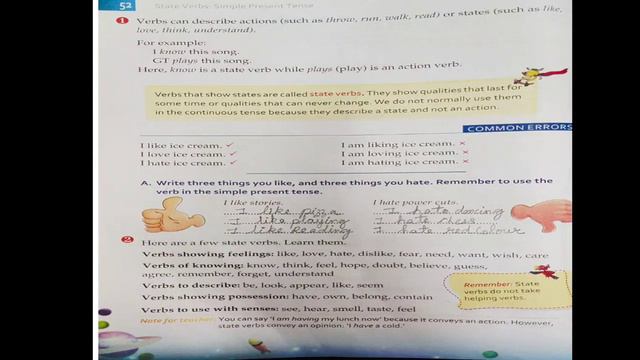 52 State Verbs: Simple Present Tense
1 Verbs can describe actions (such as throw, run, walk, read) or states (such as like,
love, think, understand).
For example:
I know this song.
GT plays this song.
Here, know is a state verb while plays (play) is an action verb.
Verbs that show states are called state verbs. They show qualities that last for
some time or qualities that can never change. We do not normally use them
in the continuous tense because they describe a state and not an action.
COMMON ERRORS
I like ice cream. ✓ I am liking ice cream. ×
I love ice cream. ✓ I am loving ice cream. ×
I hate ice cream. ✓ I am hating ice cream. ×
A. Write three things you like, and three things you hate. Remember to use the
verb in the simple present tense.
I like stories. I hate power cuts.
I like pizza I hate dancing
I like playing I hate chess
I like Reading I hate red colour
2 Here are a few state verbs. Learn them.
Verbs showing feelings: like, love, hate, dislike, fear, need, want, wish, care
Verbs of knowing: know, think, feel, hope, doubt, believe, guess,
agree, remember, forget, understand
Verbs to describe: be, look, appear, like, seem
Verbs showing possession: have, own, belong, contain
Verbs to use with senses: see, hear, smell, taste, feel
Remember: State
verbs do not take
helping verbs.
Note for teacher: You can say 'I am having my lunch now' because it conveys an action. However,
state verbs convey an opinion. 'I have a cold.'